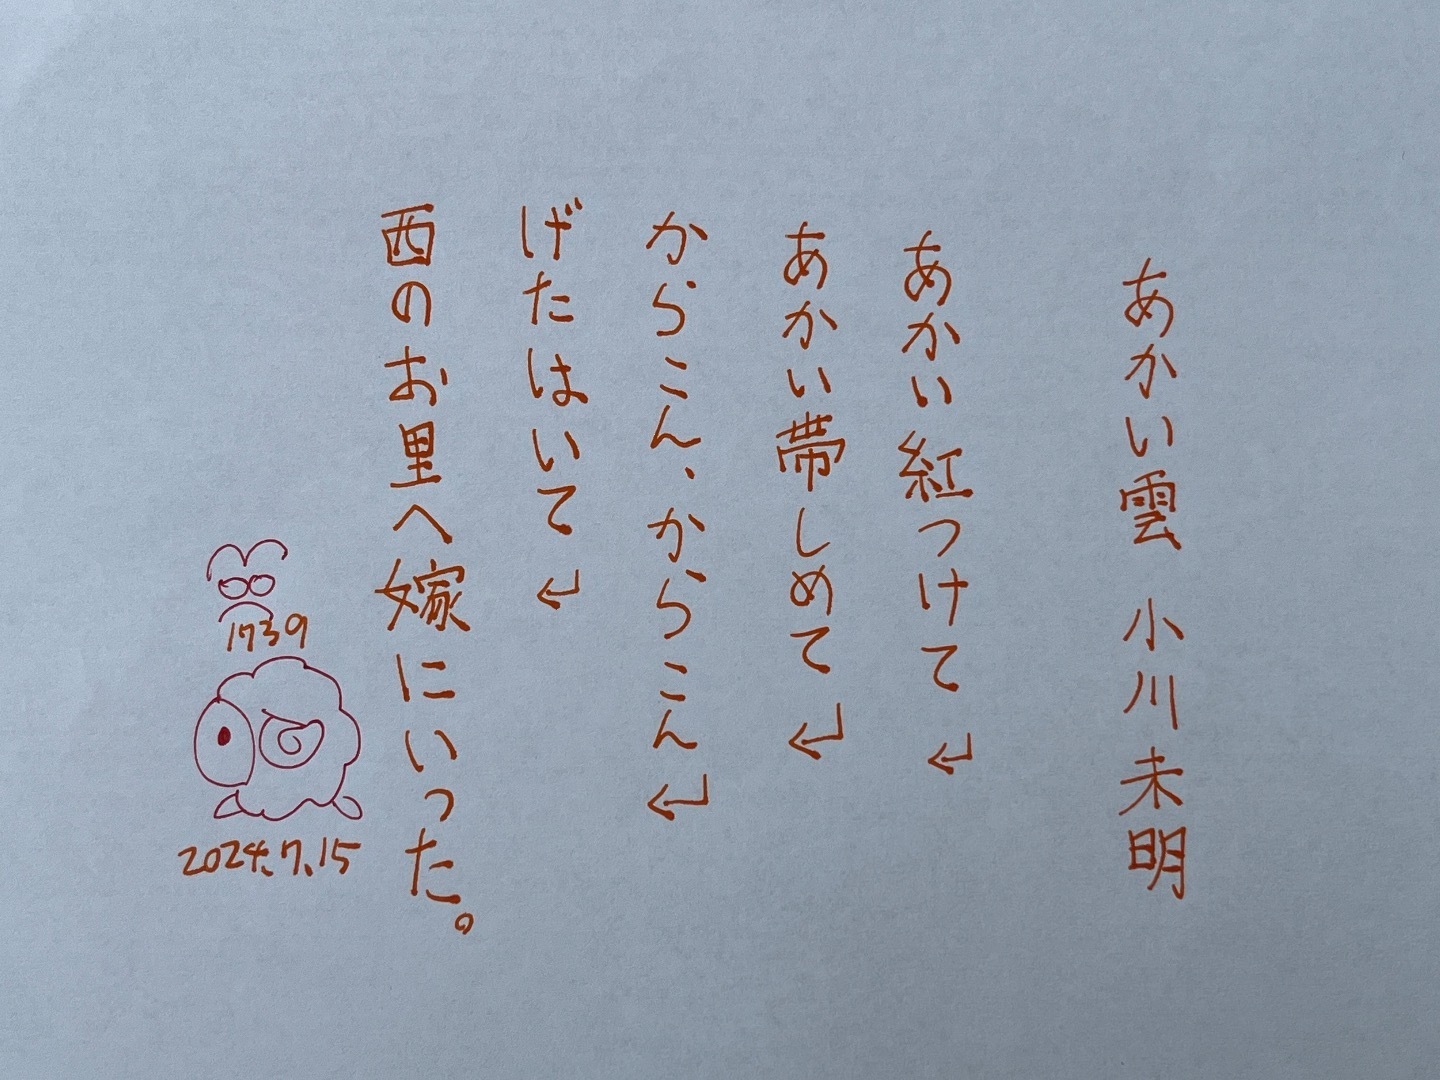 あかい雲 小川未明
あかい紅つけて↵
あかい帯しめて↵
からこん、からこん↵
げたはいて↵
西のお里へ嫁にいった。
1739
2024.7.15